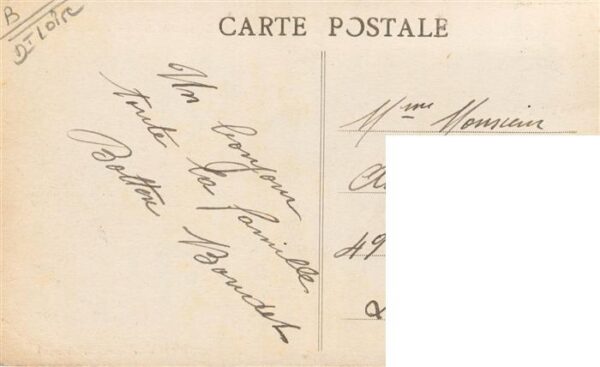 B
Dt LOIRE
CARTE POSTALE
Un bonjour
toute la famille
Botton Boudet
Mme Monsieur
49